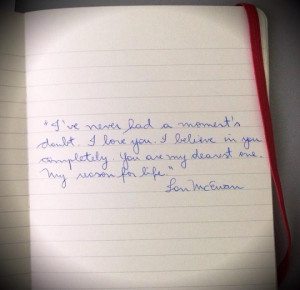 "I've never had a moment's
doubt. I love you. I believe in you
completely. You are my dearest one.
My reason for life."
Ian McEwan